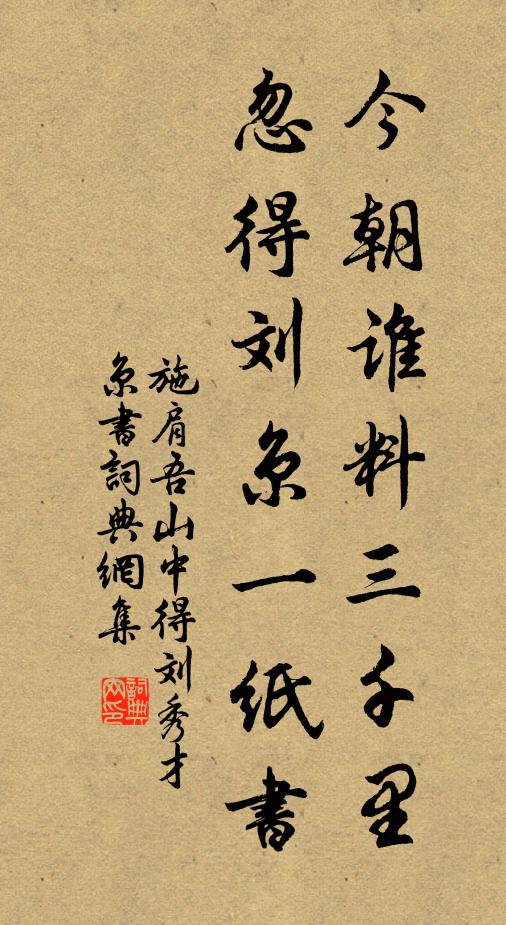 今朝谁料三千里
忽得刘京一纸書
施肩吾山中得刘秀才
京書詞典網集
詞典
网印